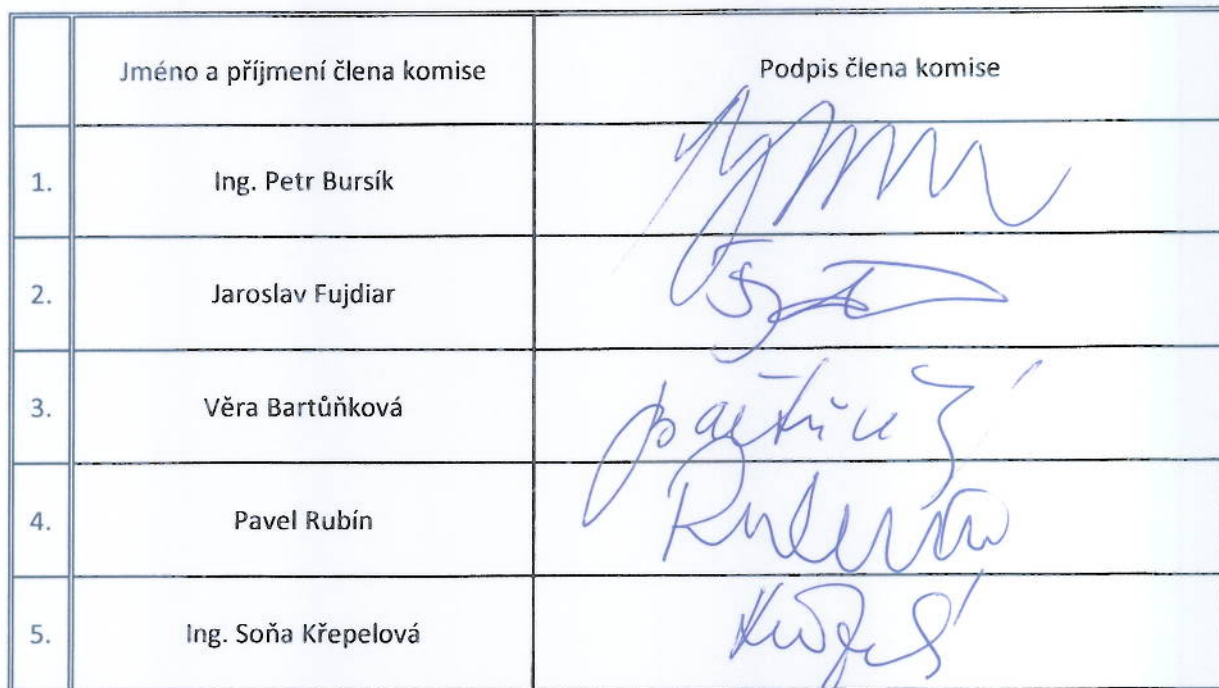 Jméno a příjmení člena komise Podpis člena komise
1. Ing. Petr Bursík
2. Jaroslav Fujdiar
3. Věra Bartůňková
4. Pavel Rubín
5. Ing. Soňa Křepelová